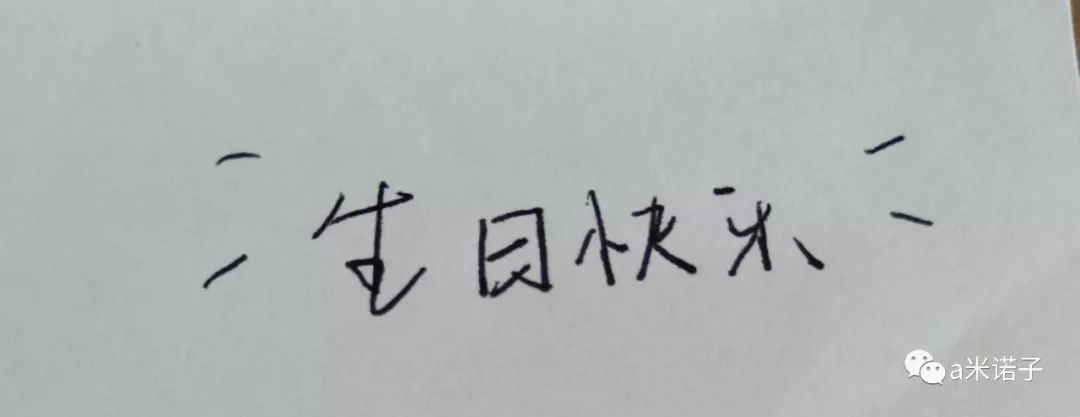 生日快乐
a米诺子